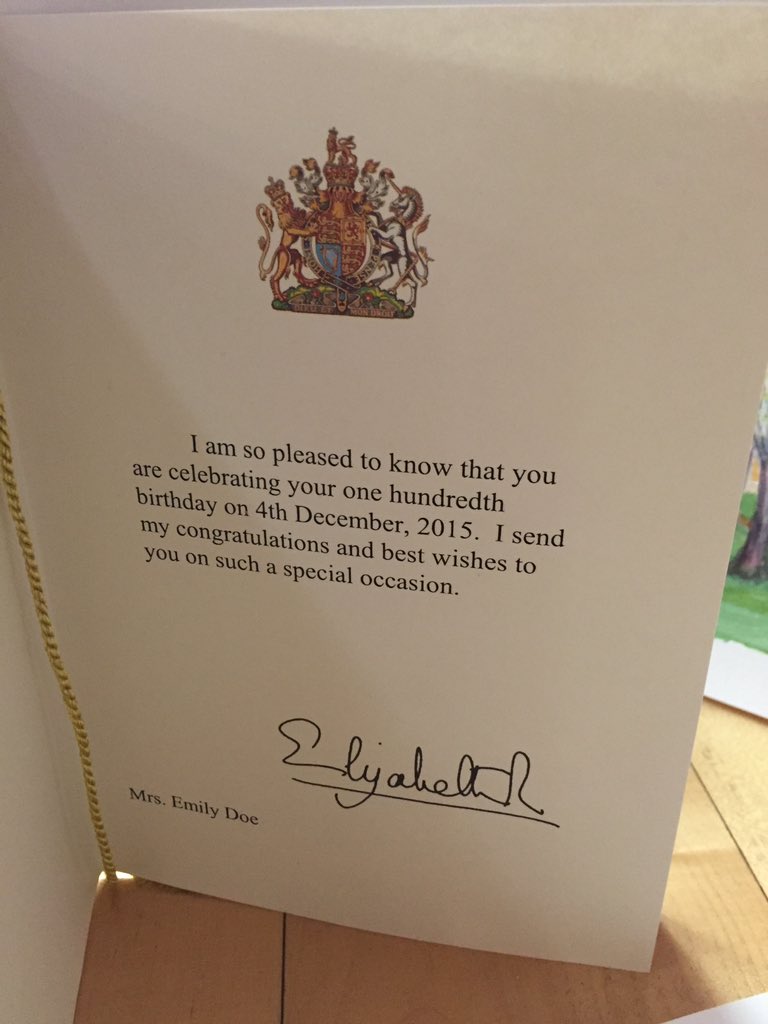 DIEU ET MON DROIT
I am so pleased to know that you
are celebrating your one hundredth
birthday on 4th December, 2015. I send
my congratulations and best wishes to
you on such a special occasion.
Elizabeth R
Mrs. Emily Doe